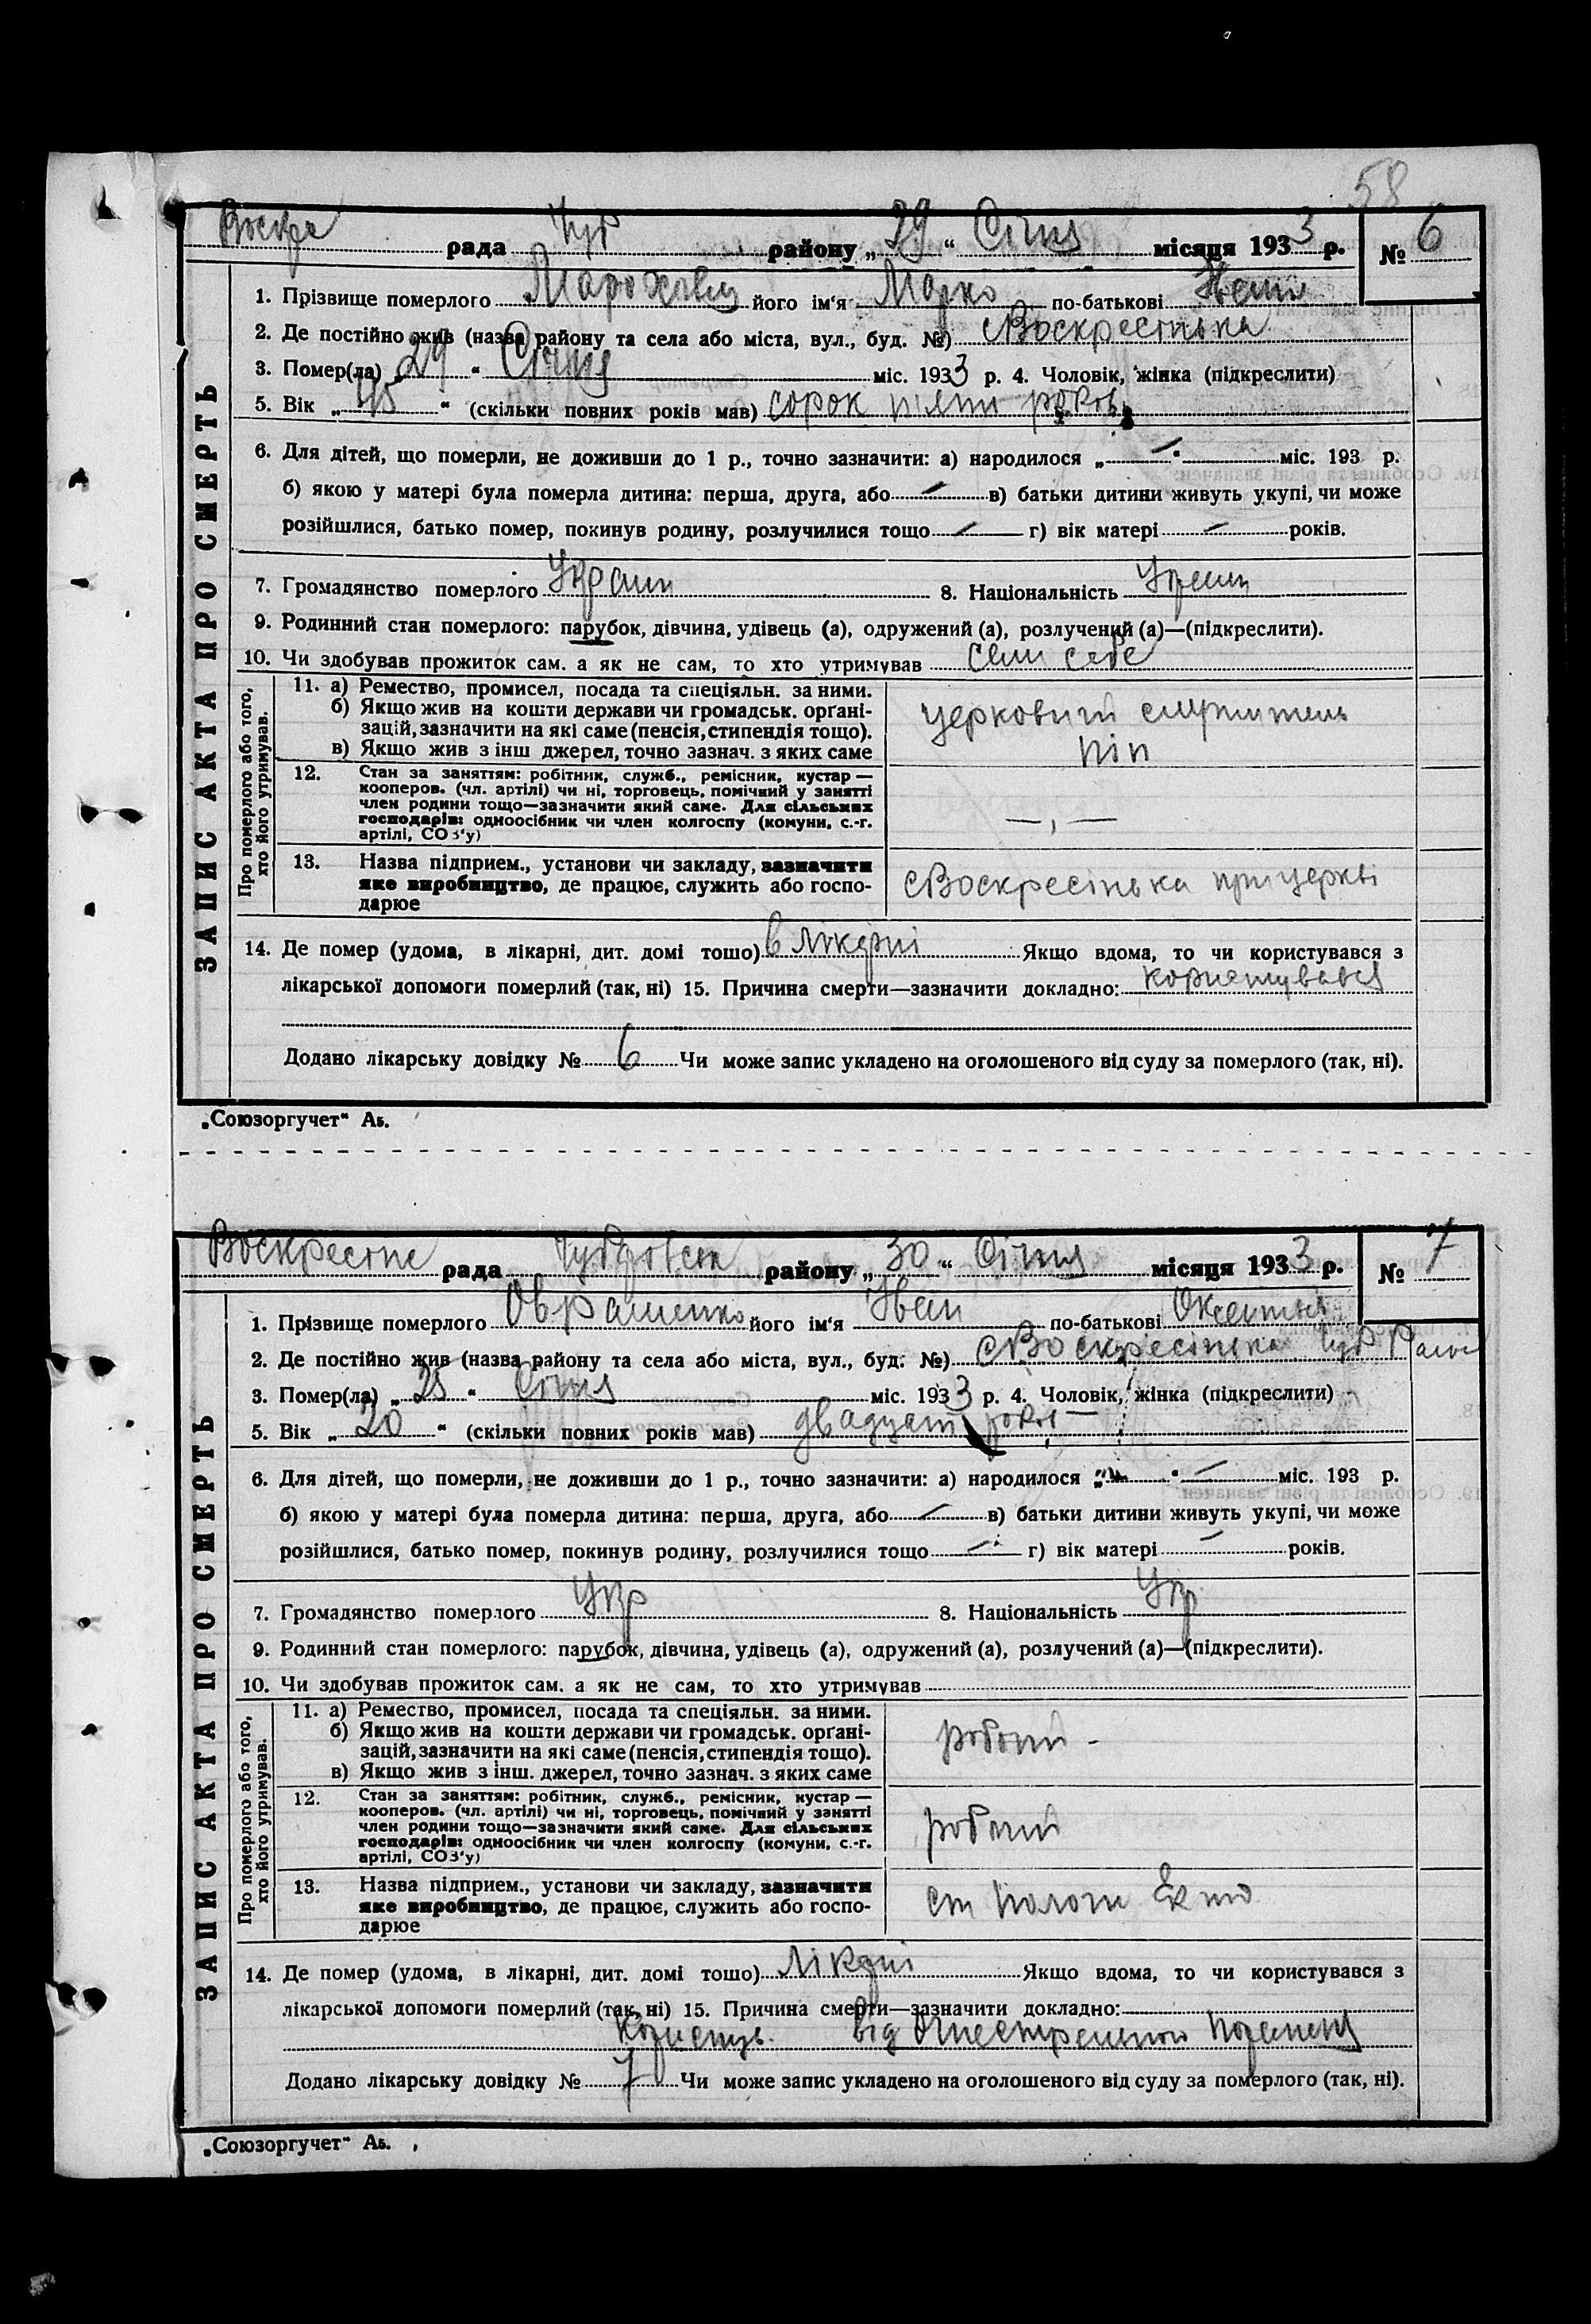 58
Воскре рада Чуб району „29“ Січня місяця 1933 р. № 6
ЗАПИС АКТА ПРО СМЕРТЬ
1. Прізвище померлого його ім‘я Марко по-батькові
2. Де постійно жив (назва району та села або міста, вул., буд. №) с Воскресінька
3. Помер(ла) „29“ Січня міс. 1933 р. 4. Чоловік, жінка (підкреслити)
5. Вік „45“ (скільки повних років мав) сорок пяти років
6. Для дітей, що померли, не доживши до 1 р., точно зазначити: а) народилося „—“ міс. 193 р.
б) якою у матері була померла дитина: перша, друга, або — в) батьки дитини живуть укупі, чи може
розійшлися, батько помер, покинув родину, розлучилися тощо — г) вік матері — років.
7. Громадянство померлого Украин 8. Національність
9. Родинний стан померлого: парубок, дівчина, удівець (а), одружений (а), розлучений (а)—(підкреслити).
10. Чи здобував прожиток сам. а як не сам, то хто утримував сам себе
Про померлого або того, хто його утримував.
11. а) Ремество, промисел, посада та спеціяльн. за ними.
б) Якщо жив на кошти держави чи громадськ. орґані-
зацій, зазначити на які саме (пенсія, стипендія тощо).
в) Якщо жив з інш джерел, точно зазнач. з яких саме
церковний служитель
піп
12. Стан за заняттям: робітник, служб., ремісник, кустар —
кооперов. (чл. артілі) чи ні, торговець, помічний у занятті
член родини тощо—зазначити який саме. Для сільських
господарів: одноосібник чи член колгоспу (комуни, с.-г.
артілі, СОЗ‘у)
— , —
13. Назва підприєм., установи чи закладу, зазначити
яке виробництво, де працює, служить або госпо-
дарює
с Воскресінька при церкві
14. Де помер (удома, в лікарні, дит. домі тошо) в лікарні Якщо вдома, то чи користувався з
лікарської допомоги померлий (так, ні) 15. Причина смерти—зазначити докладно: користувався
Додано лікарську довідку № 6 Чи може запис укладено на оголошеного від суду за померлого (так, ні).
„Союзоргучет“ Аь.
Воскресінс рада Чубарівськ району „30“ Січня місяця 1933 р. № 7
ЗАПИС АКТА ПРО СМЕРТЬ
1. Прізвище померлого Овраменко його ім‘я Іван по-батькові
2. Де постійно жив (назва району та села або міста, вул., буд. №) с Воскресінька Чуб Району
3. Помер(ла) „25“ Січня міс. 1933 р. 4. Чоловік, жінка (підкреслити)
5. Вік „20“ (скільки повних років мав) двадцать років —
6. Для дітей, що померли, не доживши до 1 р., точно зазначити: а) народилося „—“ — міс. 193 р.
б) якою у матері була померла дитина: перша, друга, або — в) батьки дитини живуть укупі, чи може
розійшлися, батько помер, покинув родину, розлучилися тощо — г) вік матері — років.
7. Громадянство померлого Укр 8. Національність Укр
9. Родинний стан померлого: парубок, дівчина, удівець (а), одружений (а), розлучений (а)—(підкреслити).
10. Чи здобував прожиток сам. а як не сам, то хто утримував
Про померлого або того, хто його утримував.
11. а) Ремество, промисел, посада та спеціяльн. за ними.
б) Якщо жив на кошти держави чи громадськ. орґані-
зацій, зазначити на які саме (пенсія, стипендія тощо).
в) Якщо жив з інш. джерел, точно зазнач. з яких саме
робочий -
12. Стан за заняттям: робітник, служб., ремісник, кустар —
кооперов. (чл. артілі) чи ні, торговець, помічний у занятті
член родини тощо—зазначити який саме. Для сільських
господарів: одноосібник чи член колгоспу (комуни, с.-г.
артілі, СОЗ‘у)
робочий
13. Назва підприєм., установи чи закладу, зазначити
яке виробництво, де працює, служить або госпо-
дарює
ст Пологи
14. Де помер (удома, в лікарні, дит. домі тошо) лікарні Якщо вдома, то чи користувався з
лікарської допомоги померлий (так, ні) 15. Причина смерти—зазначити докладно:
Користув. від огнестрельного поранения
Додано лікарську довідку № 7 Чи може запис укладено на оголошеного від суду за померлого (так, ні).
„Союзоргучет“ Аь.